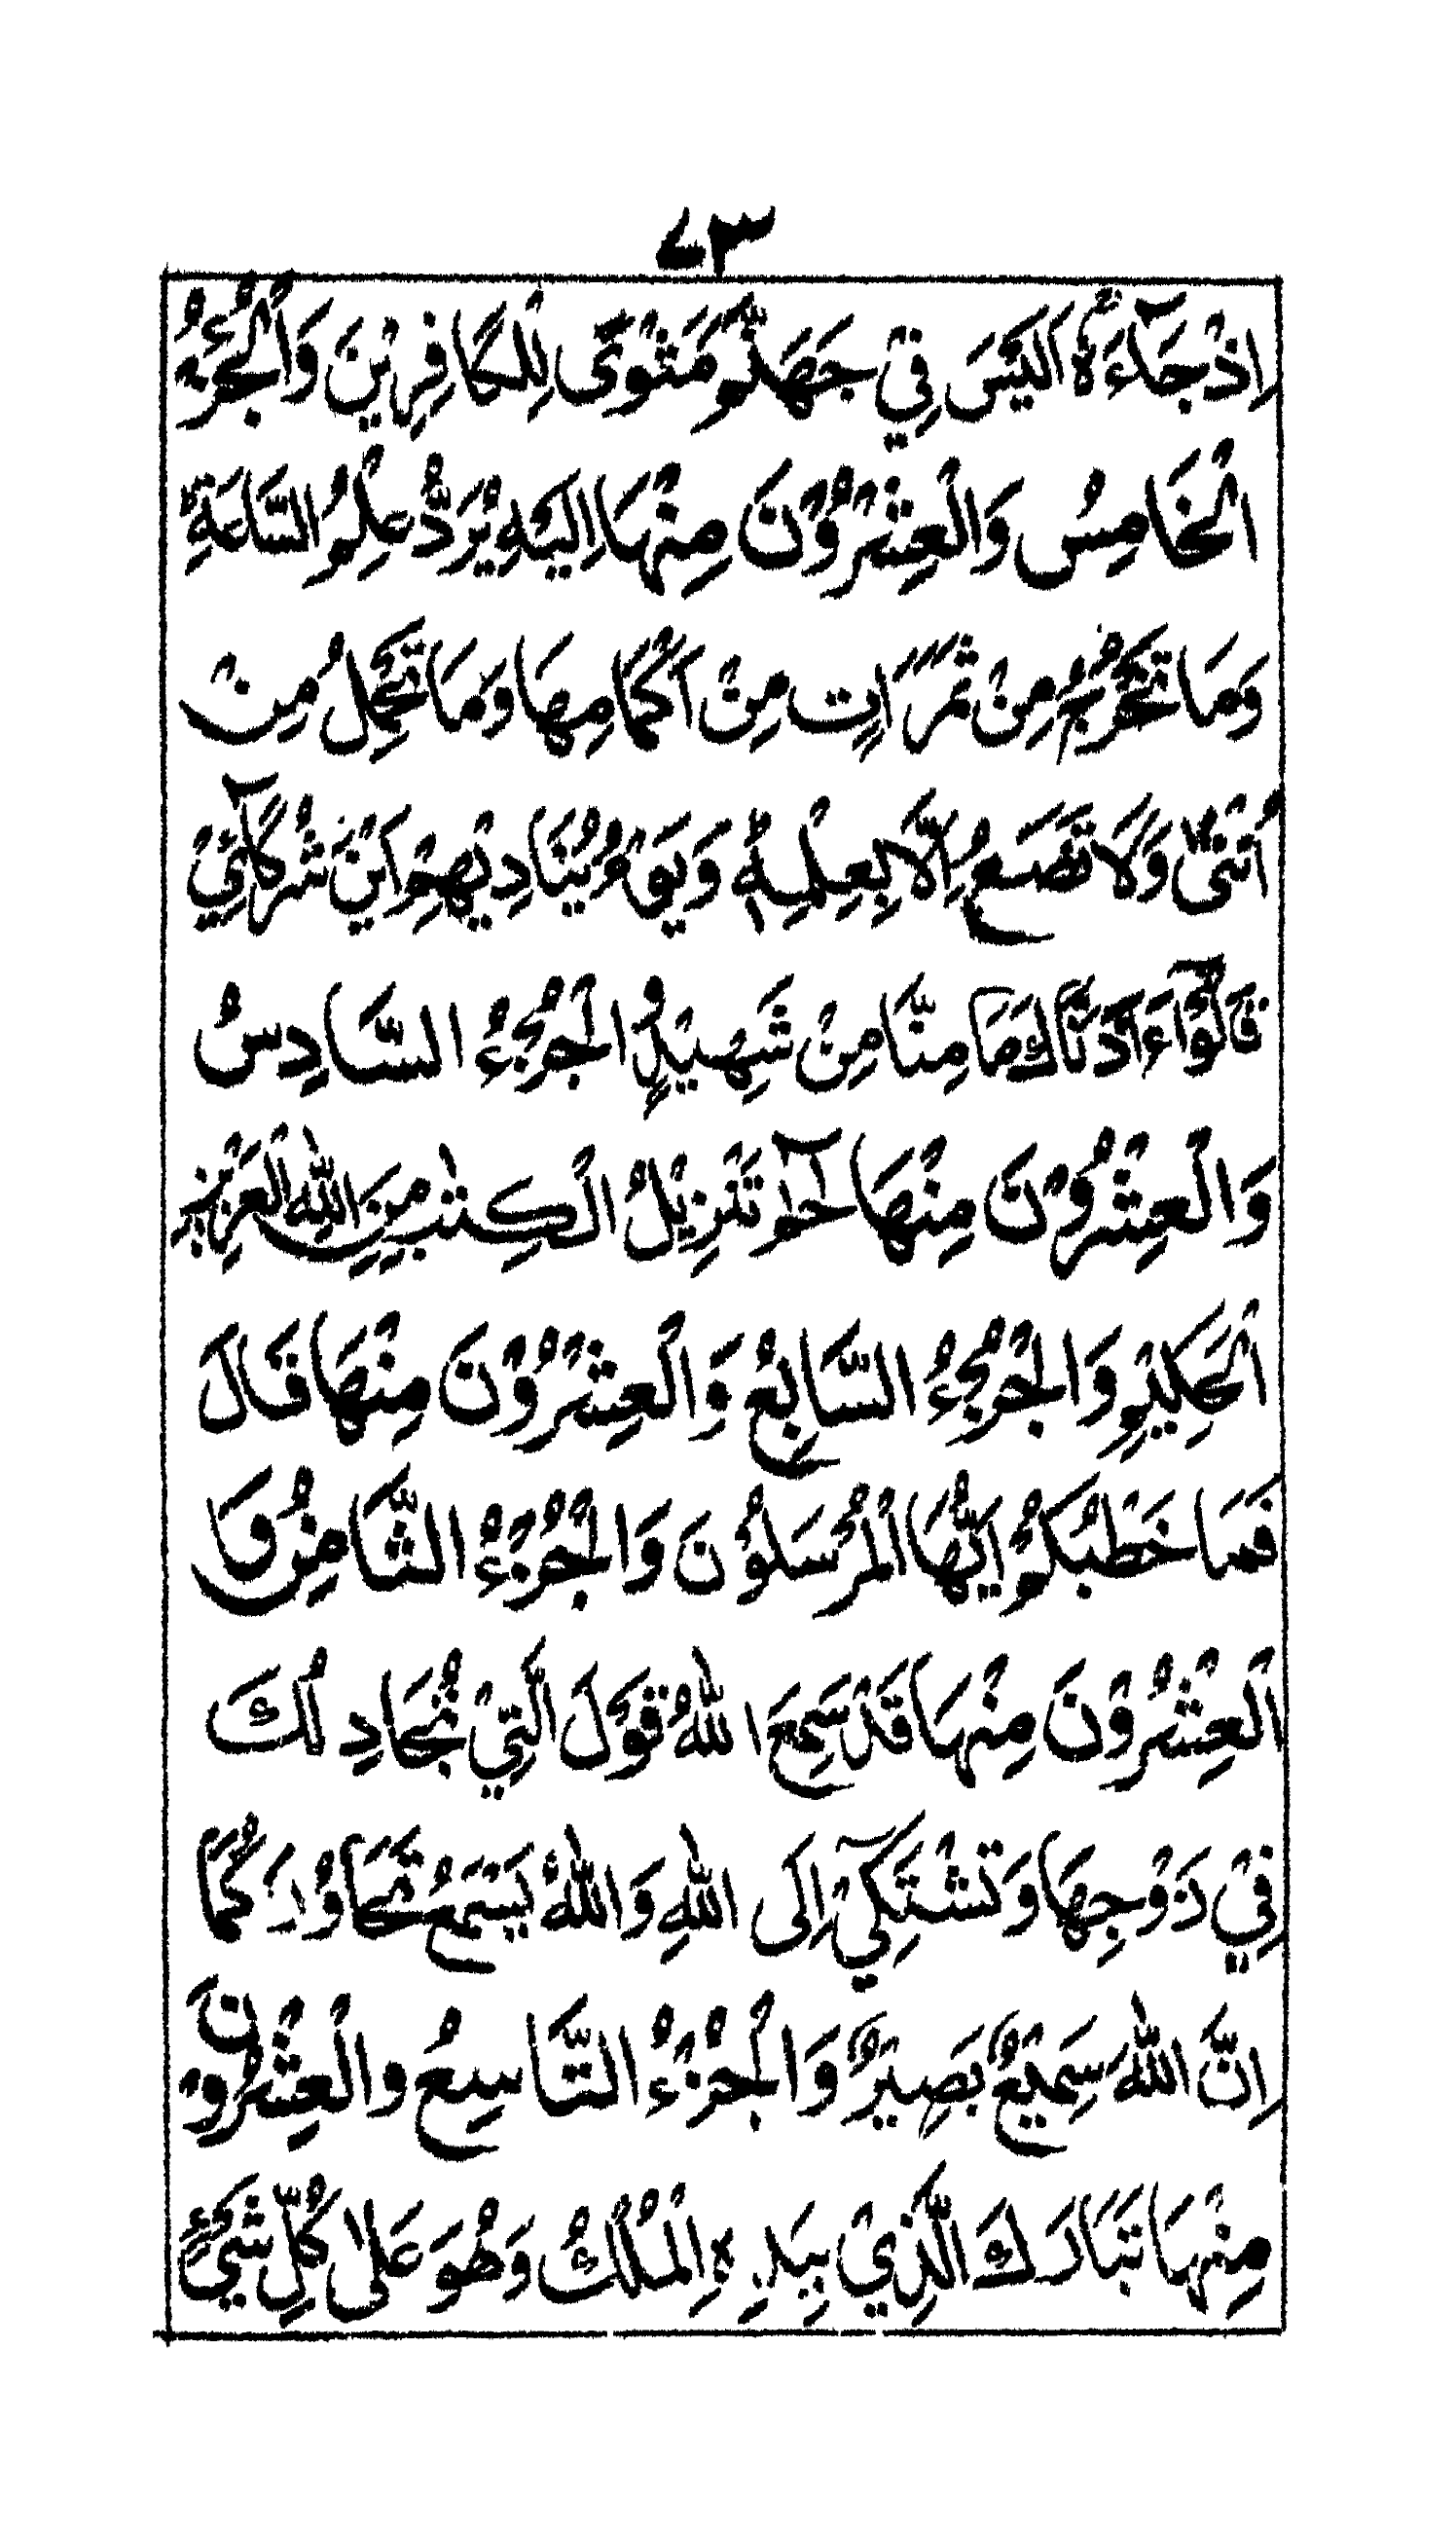 ٧٣
اِذْ جَآءَهُ اَلَيْسَ فِيْ جَهَنَّمَ مَثْوًى لِلْكَافِرِيْنَ وَالْجُزْءُ
الْخَامِسُ وَالْعِشْرُوْنَ مِنْهَا اِلَيْهِ يُرَدُّ عِلْمُ السَّاعَةِ
وَمَا تَخْرُجُ مِنْ ثَمَرَاتٍ مِنْ اَكْمَامِهَا وَمَا تَحْمِلُ مِنْ
اُنْثٰى وَلَا تَضَعُ اِلَّا بِعِلْمِهٖ وَيَوْمَ يُنَادِيْهِمْ اَيْنَ شُرَكَآئِيْ
قَالُوْا آذَنَّاكَ مَا مِنَّا مِنْ شَهِيْدٍ الْجُزْءُ السَّادِسُ
وَالْعِشْرُوْنَ مِنْهَا حٰمٓ تَنْزِيْلُ الْكِتٰبِ مِنَ اللّٰهِ الْعَزِيْزِ
الْحَكِيْمِ وَالْجُزْءُ السَّابِعُ وَالْعِشْرُوْنَ مِنْهَا قَالَ
فَمَا خَطْبُكُمْ اَيُّهَا الْمُرْسَلُوْنَ وَالْجُزْءُ الثَّامِنُ وَ
الْعِشْرُوْنَ مِنْهَا قَدْ سَمِعَ اللّٰهُ قَوْلَ الَّتِيْ تُجَادِلُكَ
فِيْ زَوْجِهَا وَتَشْتَكِيْٓ اِلَى اللّٰهِ وَاللّٰهُ يَسْمَعُ تَحَاوُرَكُمَا
اِنَّ اللّٰهَ سَمِيْعٌ بَصِيْرٌ وَالْجُزْءُ التَّاسِعُ وَالْعِشْرُوْنَ
مِنْهَا تَبَارَكَ الَّذِيْ بِيَدِهِ الْمُلْكُ وَهُوَ عَلٰى كُلِّ شَيْءٍ